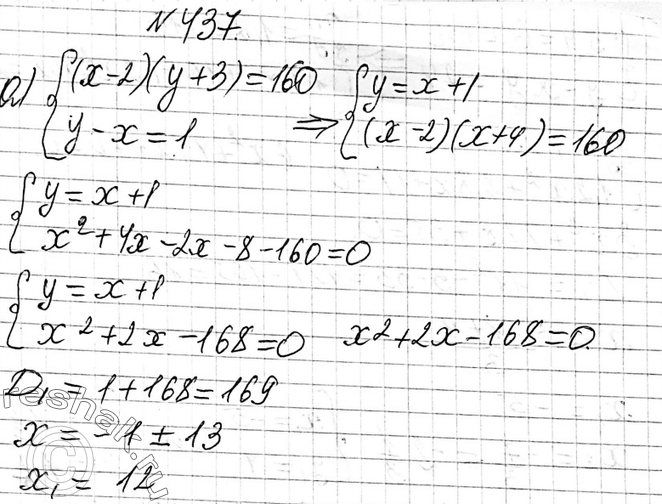 N 437.
а) { (x-2)(y+3)=160 ⇒ { y=x+1
{ y-x=1 { (x-2)(x+4)=160
{ y=x+1
{ x²+4x-2x-8-160=0
{ y=x+1
{ x²+2x-168=0 x²+2x-168=0
D₁=1+168=169
x=-1±13
x₁=12
reshak.ru